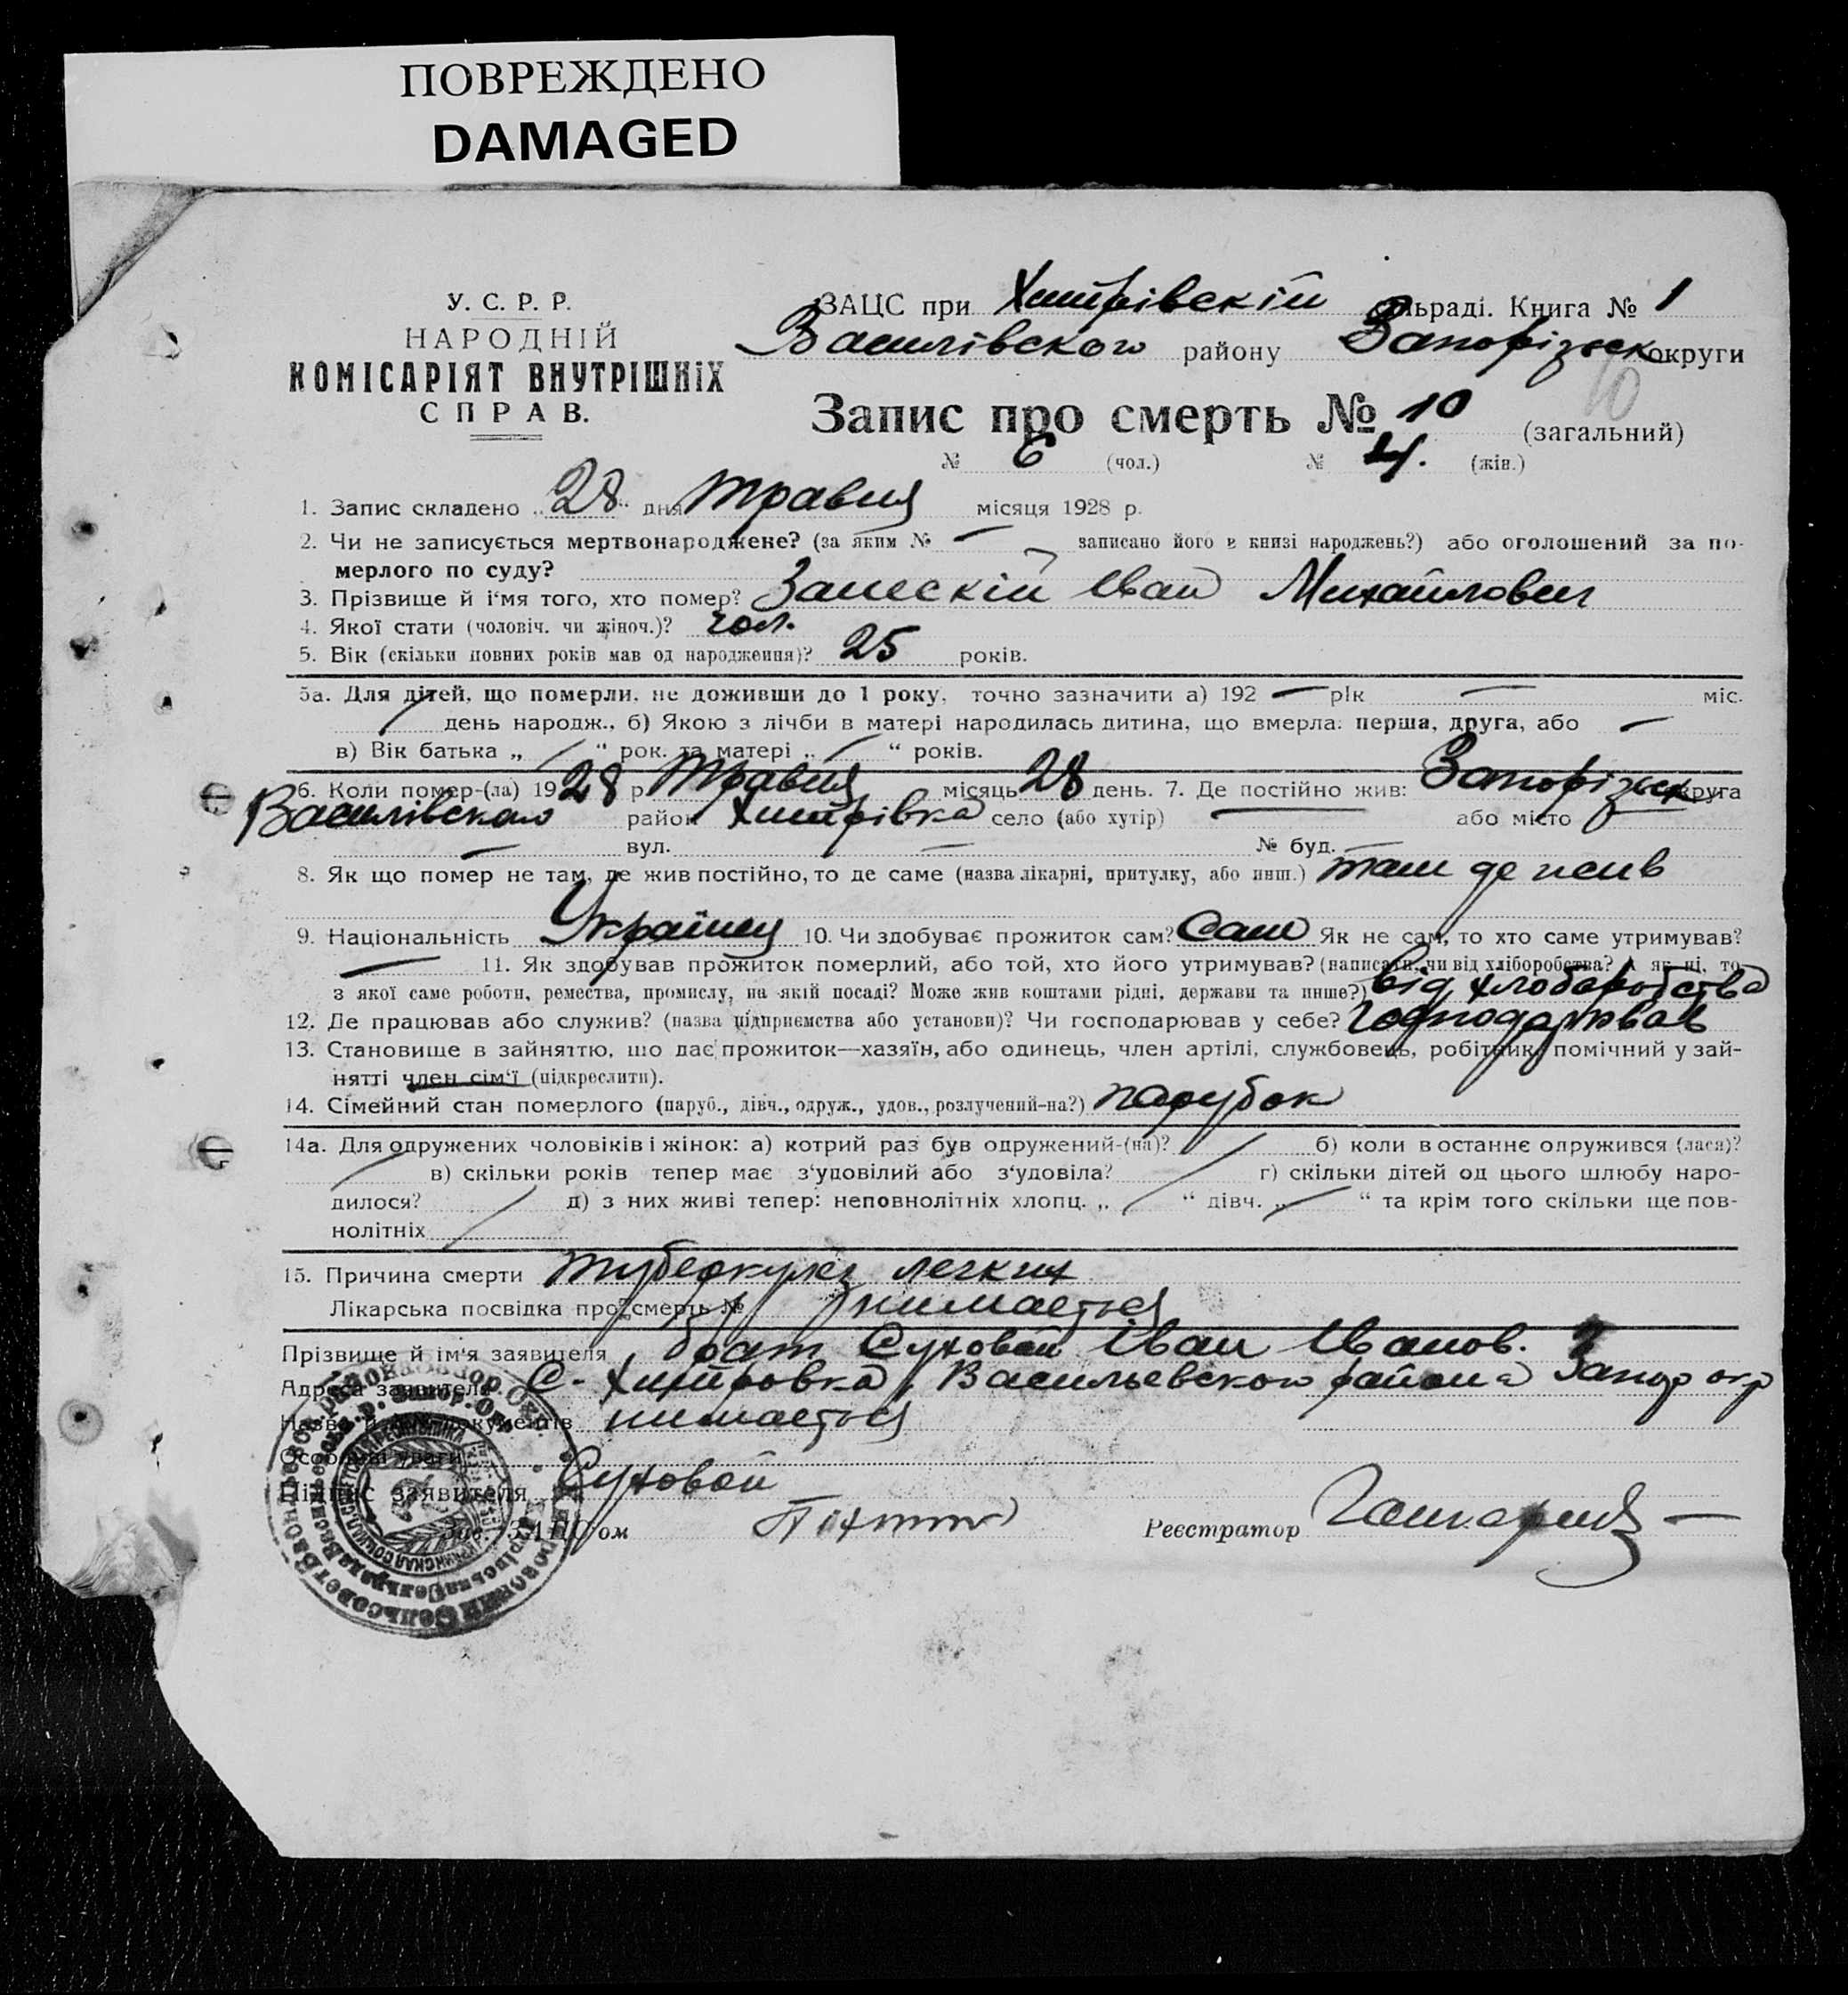 ПОВРЕЖДЕНО
DAMAGED
У. С. Р. Р.
НАРОДНІЙ
КОМІСАРІЯТ ВНУТРІШНІХ
СПРАВ.
ЗАЦС при Хитрівскій сільраді. Книга № 1
Василівского району Запорізьск округи
Запис про смерть № 10 (загальний)
10
№ 6 (чол.) № 4. (жін.)
1. Запис складено „28“ дня травня місяця 1928 р.
2. Чи не записується мертвонароджене? (за яким № — записано його в книзі народжень?) або оголошений за по-
мерлого по суду?
3. Прізвище й і‘мя того, хто помер? Іван Михайлович
4. Якої стати (чоловіч. чи жіноч.)? чол.
5. Вік (скільки повних років мав од народження)? 25 років.
5а. Для дітей, що померли, не доживши до 1 року, точно зазначити а) 192 — рік — міс.
день народж., б) Якою з лічби в матері народилась дитина, що вмерла: перша, друга, або —
в) Вік батька „ “ рок. та матері „ “ років.
6. Коли помер-(ла) 1928 р. травня місяць 28 день. 7. Де постійно жив: Запорізьск округа
Василівского район Хитрівка село (або хутір) — або місто —
— вул. — № буд.
8. Як що помер не там, де жив постійно, то де саме (назва лікарні, притулку, або инш.) там де жив
9. Національність Українец 10. Чи здобуває прожиток сам? Сам Як не сам, то хто саме утримував?
— 11. Як здобував прожиток померлий, або той, хто його утримував? (написати, чи від хліборобства? А як ні, то
з якої саме роботи, ремества, промислу, на якій посаді? Може жив коштами рідні, держави та инше?) від хлоборобства
12. Де працював або служив? (назва підприємства або установи)? Чи господарював у себе? Господарював
13. Становище в зайняттю, що дає прожиток—хазяїн, або одинець, член артілі, службовець, робітник, помічний у зай-
нятті член сім‘ї (підкреслити).
14. Сімейний стан померлого (паруб., дівч., одруж., удов., розлучений-на?) парубок
14а. Для одружених чоловіків і жінок: а) котрий раз був одружений-(на)? б) коли востаннє одружився (лася)?
в) скільки років тепер має з‘удовілий або з‘удовіла? г) скільки дітей од цього шлюбу наро-
дилося? д) з них живі тепер: неповнолітніх хлопц. „ “ дівч. „ “ та крім того скільки ще пов-
нолітніх
15. Причина смерти туберкульз легких
Лікарська посвідка про смерть № нимається
Прізвище й ім'я заявителя брат Суховой Іван Иванов.
Адреса заявителя С. Хитровка, Васильевского района Запор окр
Назва й № документів нимається
Особливі уваги
Підпис заявителя Суховой
Зав. ЗАЦС'ом Реєстратор